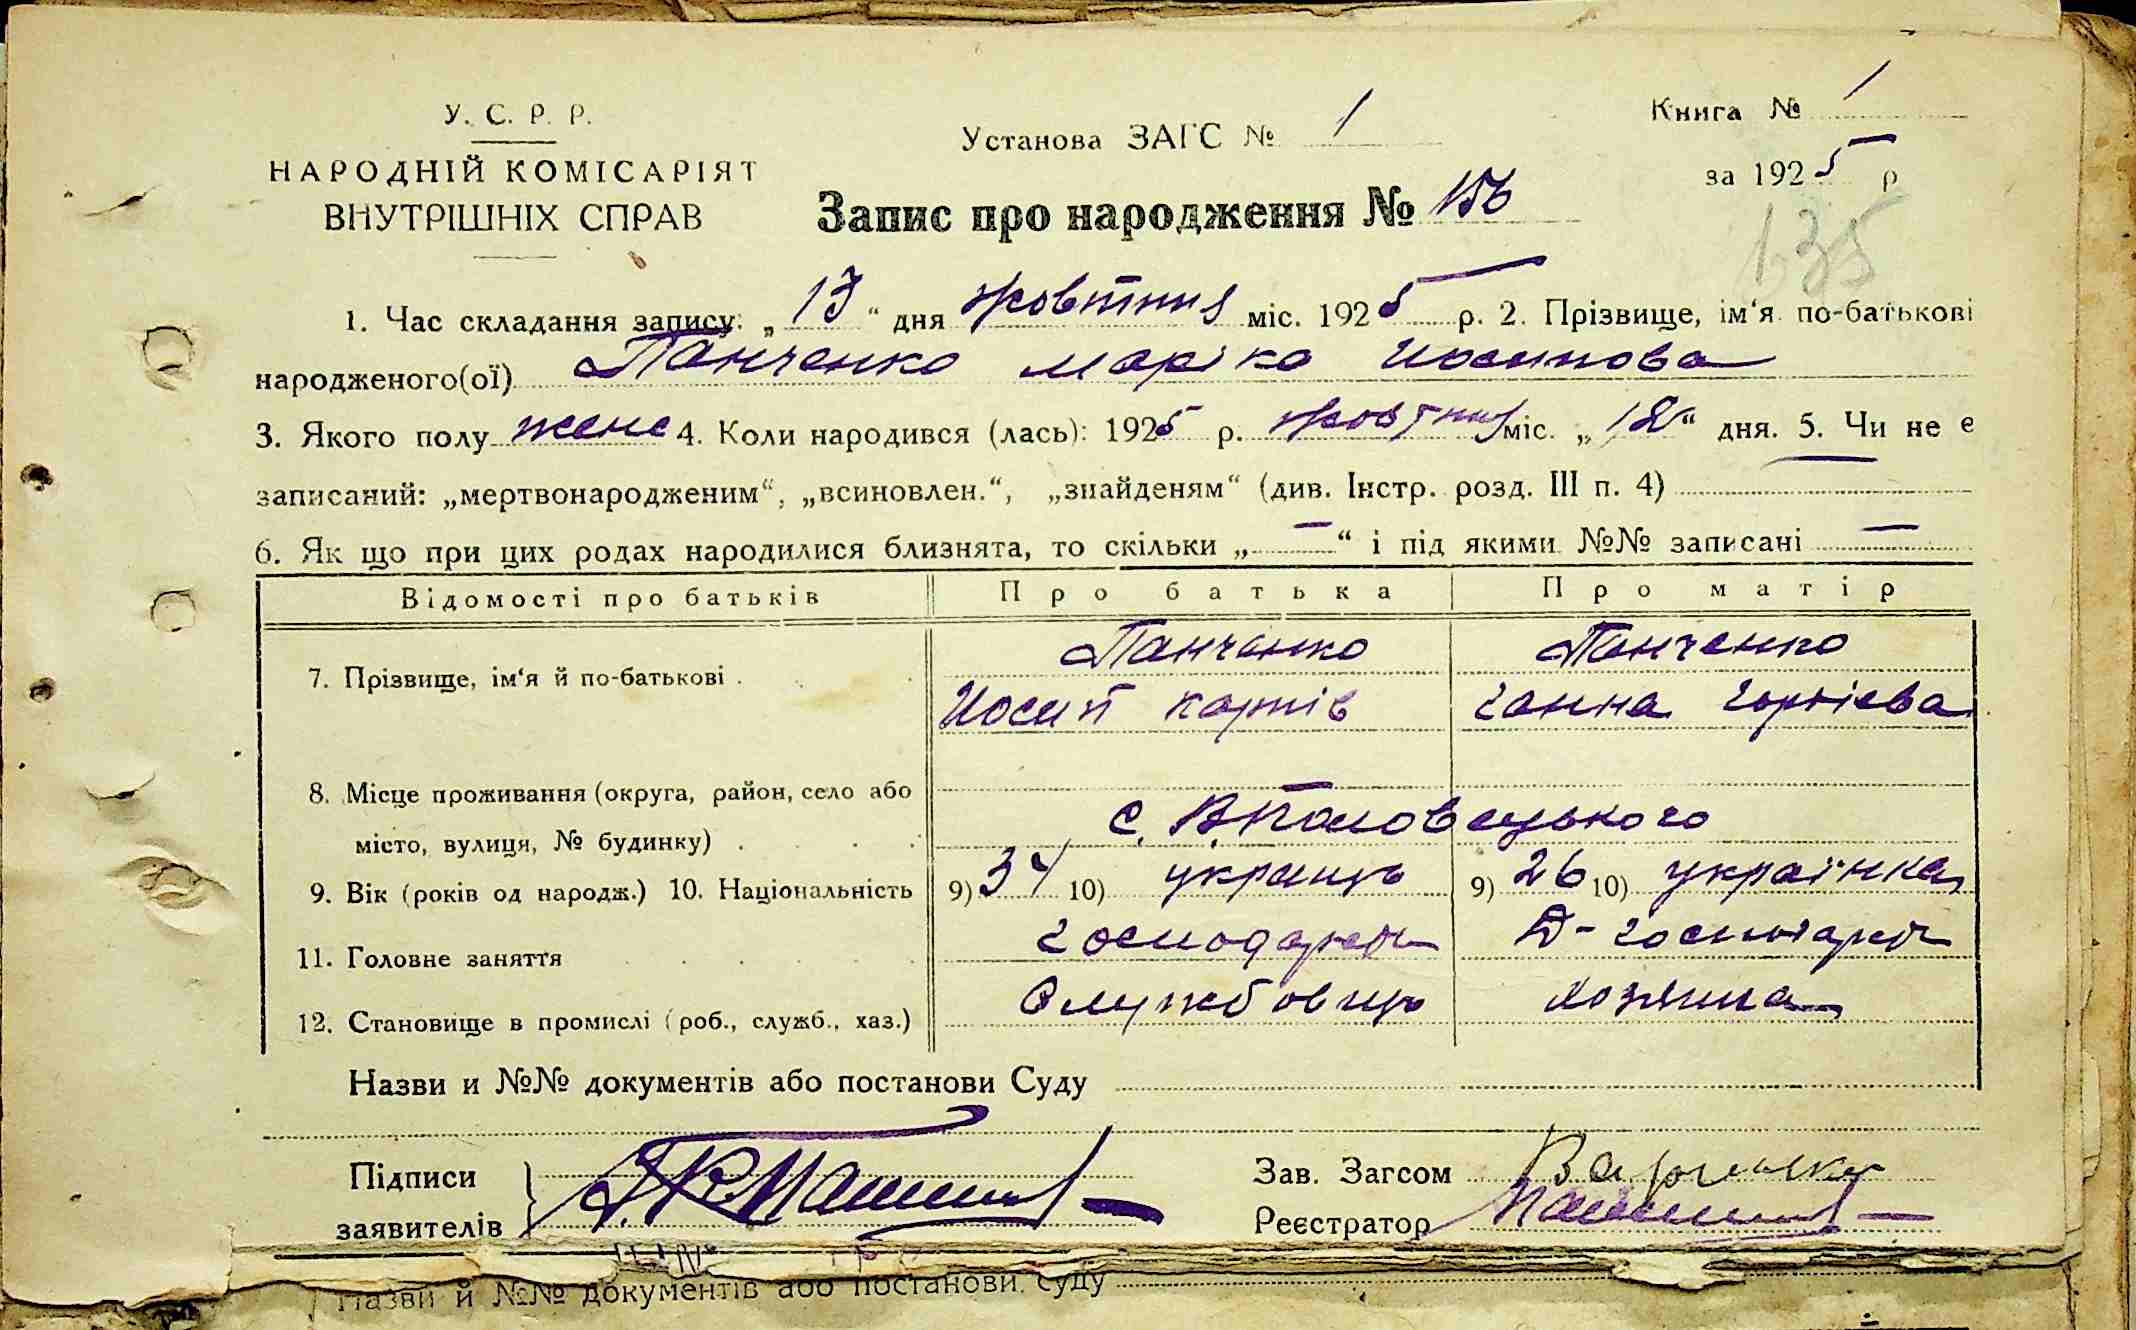 У. С. Р. Р.
НАРОДНІЙ КОМІСАРІЯТ
ВНУТРІШНІХ СПРАВ
Установа ЗАГС № 1
Книга № 1
за 1925 р
Запис про народження № 156
135
1. Час складання запису: „13“ дня жовтння міс. 1925 р. 2. Прізвище, ім‘я по-батькові
народженого(ої) Панченко Маріка Иосипова
3. Якого полу женс 4. Коли народився (лась): 1925 р. жовтння міс. „12“ дня. 5. Чи не є
записаний: „мертвонародженим“, „всиновлен.“, „знайденям“ (див. Інстр. розд. III п. 4) —
6. Як що при цих родах народилися близнята, то скільки „—“ і під якими №№ записані —
Відомості про батьків Про батька Про матір
7. Прізвище, ім‘я й по-батькові Панченко Панченко
Иосип Карпів Ганна Гордієва
8. Місце проживання (округа, район, село або
місто, вулиця, № будинку) с. В. Половецького
9. Вік (років од народж.) 10. Національність 9) 34 10) украинць 9) 26 10) українка
11. Головне заняття господарст Д-господарст
12. Становище в промислі (роб., служб., хаз.) Службовць хозяика
Назви и №№ документів або постанови Суду
Підписи
заявителів
Зав. Загсом
Реєстратор
Назви й №№ документів або постанови Суду